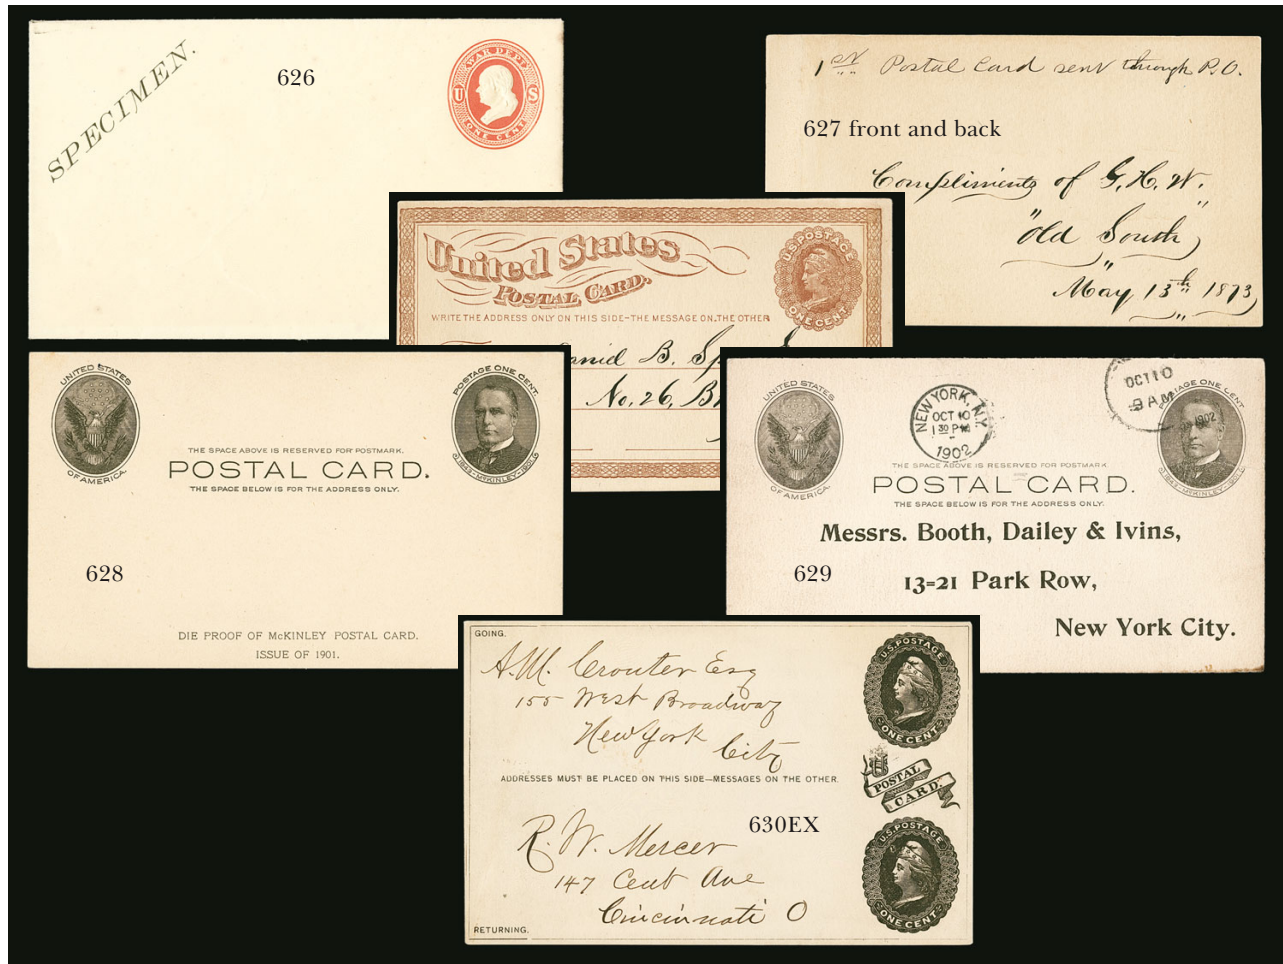 SPECIMEN.
626
WAR DEPT.
U S
ONE CENT
1st Postal Card sent through P.O.
627 front and back
Compliments of G. H. W.
"Old South"
May 13th 1873
United States
POSTAL CARD.
WRITE THE ADDRESS ONLY ON THIS SIDE–THE MESSAGE ON THE OTHER
U.S. POSTAGE
ONE CENT
B.
No. 26,
UNITED STATES
OF AMERICA.
POSTAGE ONE CENT.
1843-McKINLEY-1901
THE SPACE ABOVE IS RESERVED FOR POSTMARK.
POSTAL CARD.
THE SPACE BELOW IS FOR THE ADDRESS ONLY.
628
DIE PROOF OF McKINLEY POSTAL CARD.
ISSUE OF 1901.
UNITED STATES
OF AMERICA.
NEW YORK, N.Y.
OCT 10
1 30 PM
1902
OCT 10
9 AM
1902
AGE ONE CENT
1843-McKINLEY-1901
THE SPACE ABOVE IS RESERVED FOR POSTMARK
POSTAL CARD.
THE SPACE BELOW IS FOR THE ADDRESS ONLY.
Messrs. Booth, Dailey & Ivins,
629
13=21 Park Row,
New York City.
GOING.
A. M. Crouter Esq
155 West Broadway
New York
City
U.S. POSTAGE
ONE CENT
ADDRESSES MUST BE PLACED ON THIS SIDE—MESSAGES ON THE OTHER.
POSTAL
CARD.
630EX
R. W. Mercer
147 Cent Ave
Cincinnati O
U.S. POSTAGE
ONE CENT
RETURNING.